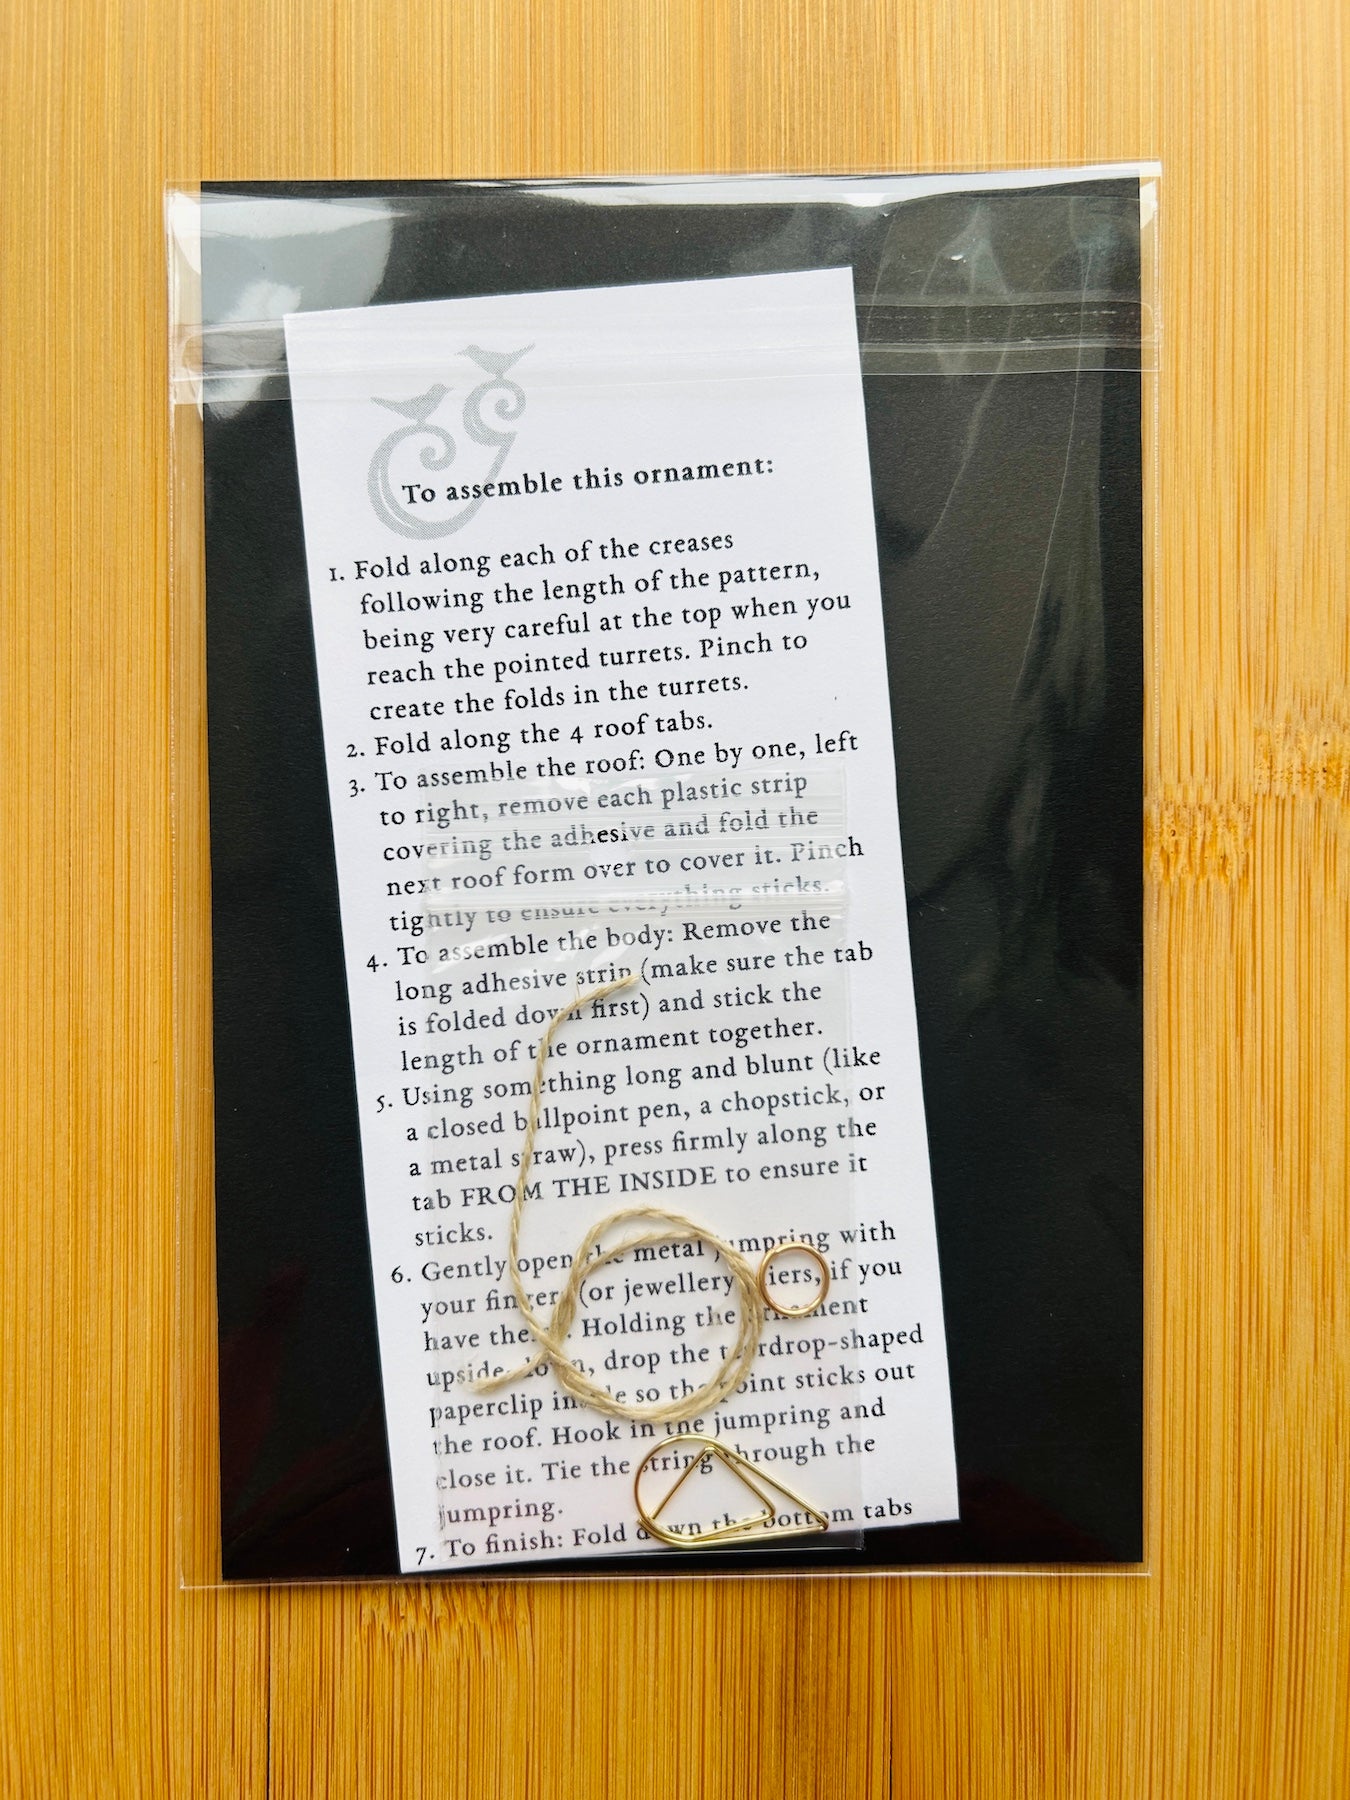 To assemble this ornament:
1. Fold along each of the creases
following the length of the pattern,
being very careful at the top when you
reach the pointed turrets. Pinch to
create the folds in the turrets.
2. Fold along the 4 roof tabs.
3. To assemble the roof: One by one, left
to right, remove each plastic strip
covering the adhesive and fold the
next roof form over to cover it. Pinch
tightly to ensure everything sticks.
4. To assemble the body: Remove the
long adhesive strip (make sure the tab
is folded down first) and stick the
length of the ornament together.
5. Using something long and blunt (like
a closed ballpoint pen, a chopstick, or
a metal straw), press firmly along the
tab FROM THE INSIDE to ensure it
sticks.
6. Gently open the metal jumpring with
your fingers (or jewellery pliers, if you
have them). Holding the ornament
upside-down, drop the teardrop-shaped
paperclip inside so the point sticks out
the roof. Hook in the jumpring and
close it. Tie the string through the
jumpring.
7. To finish: Fold down the bottom tabs